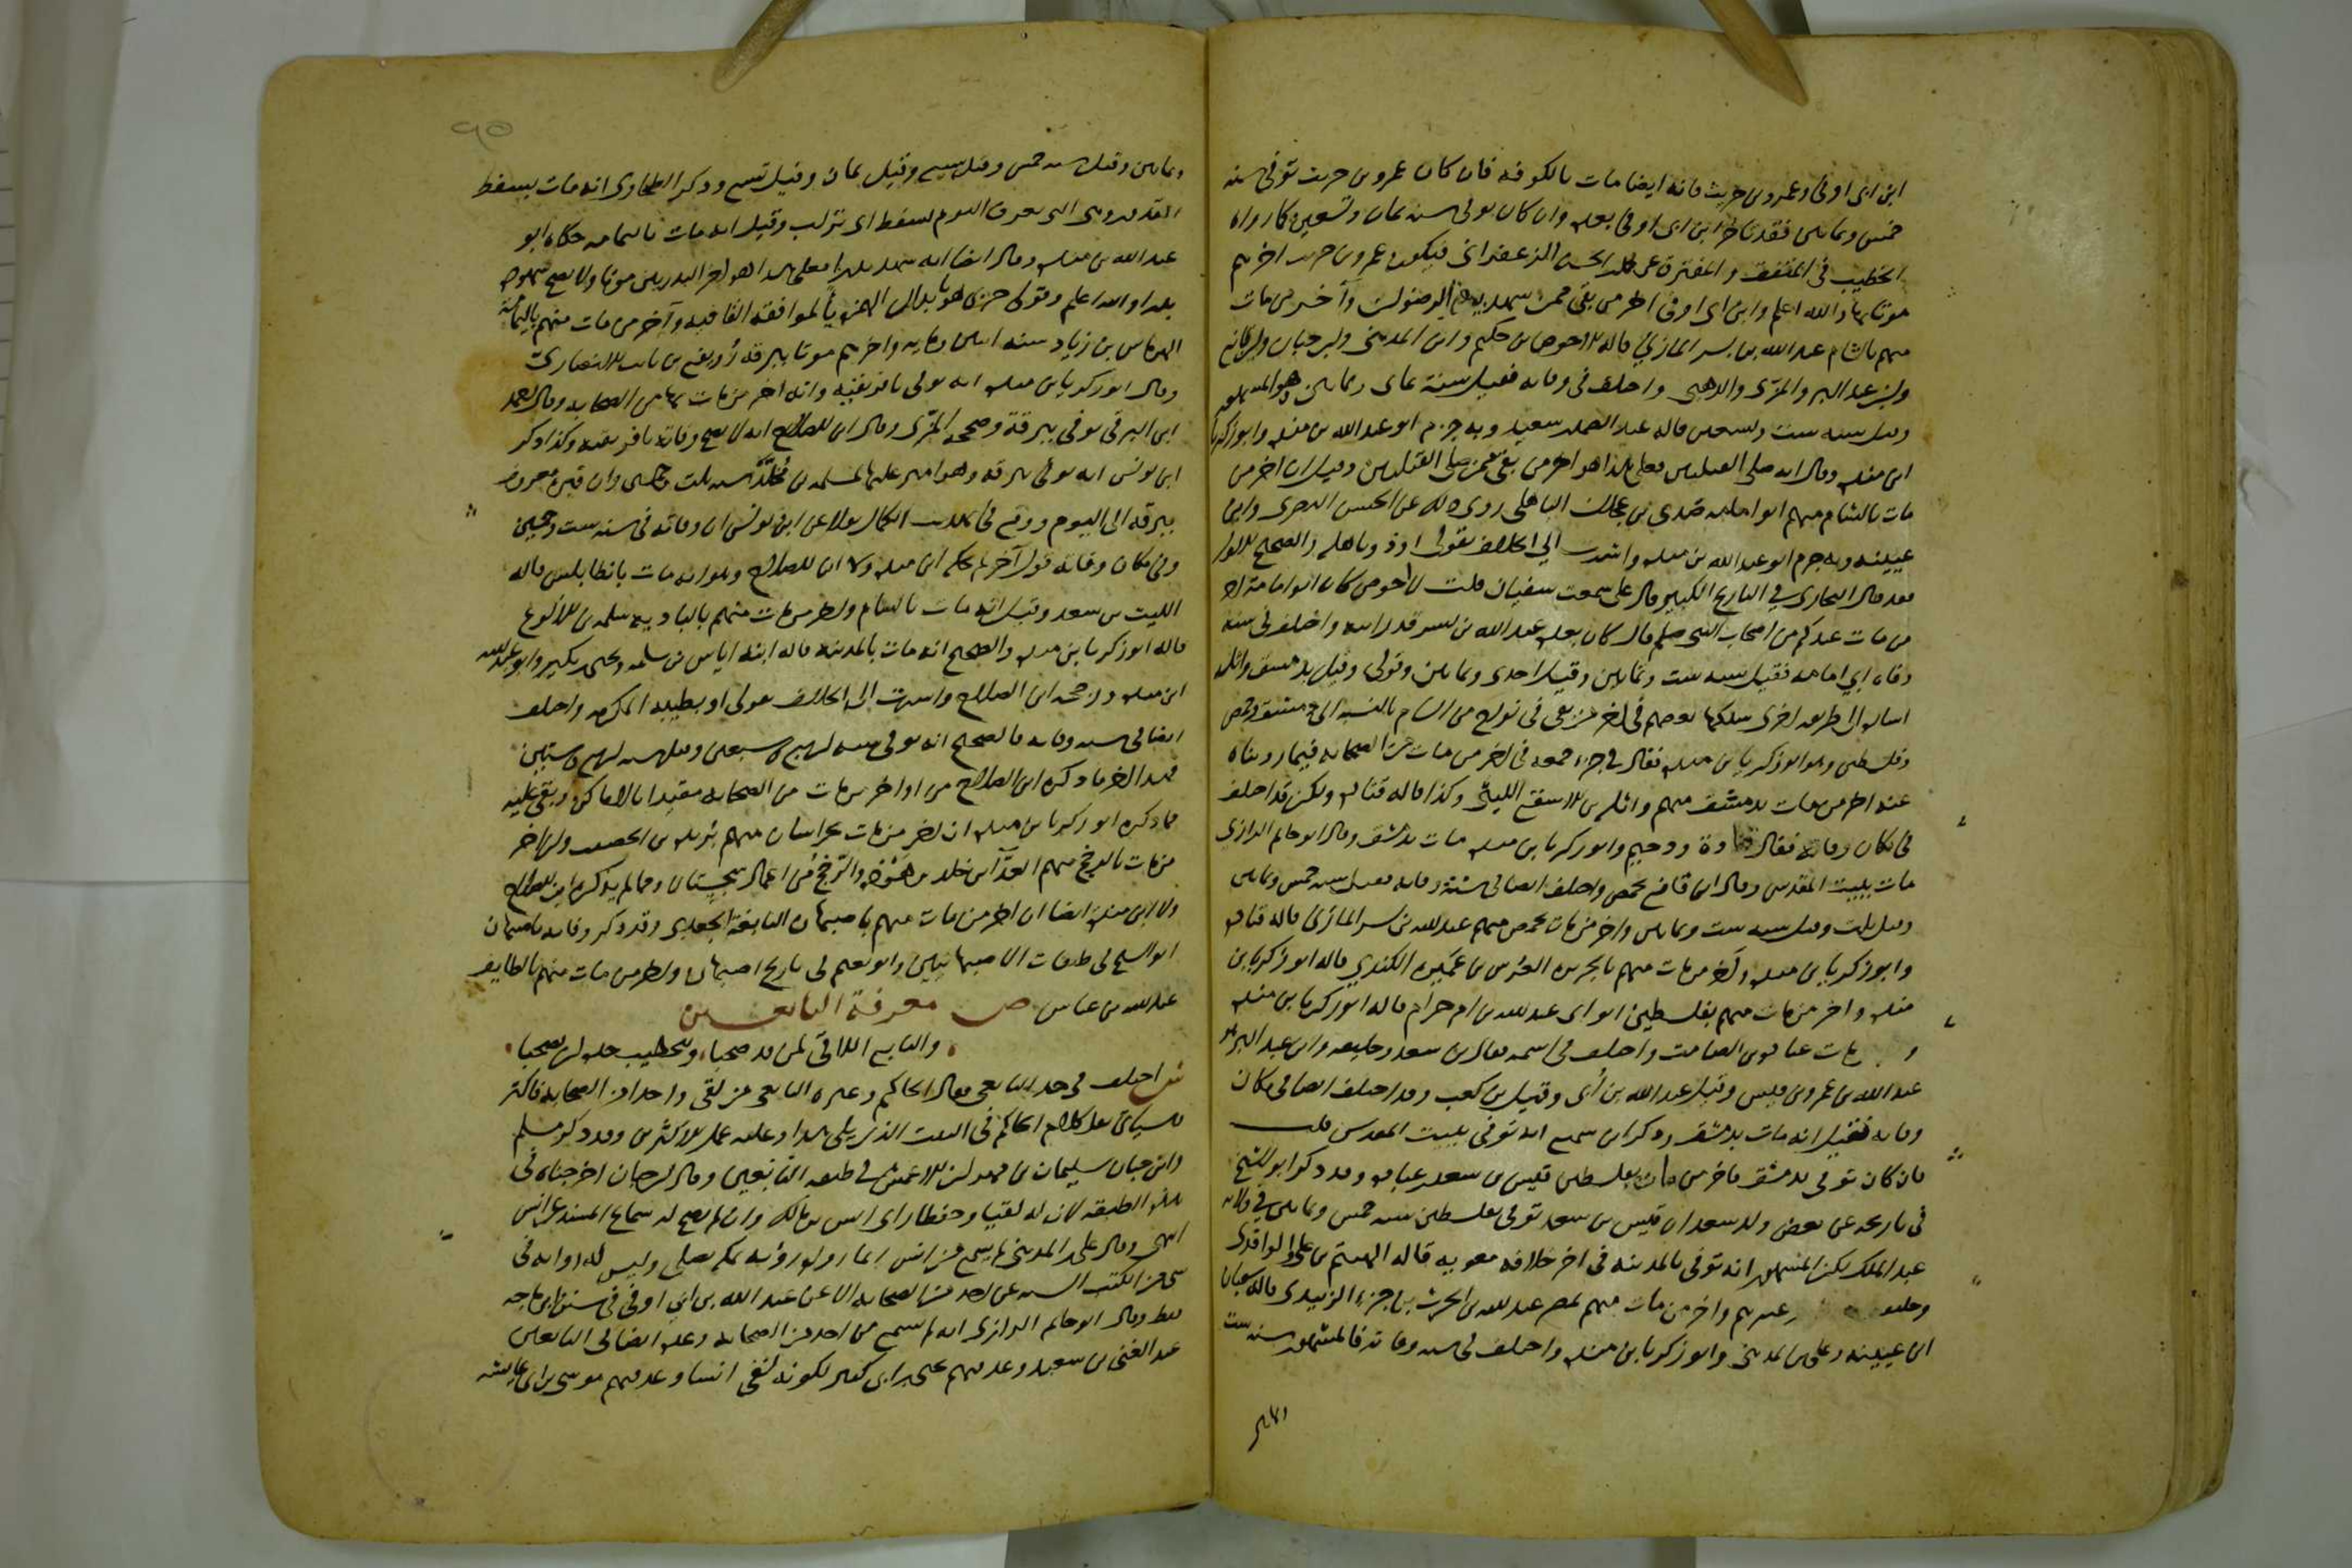 ابن ابى اوفى وعمرو بن حريث فانه ايضا مات بالكوفه فان كان عمرو بن حريث توفى سنه
خمس وثمانين فقد تاخر ابن ابى اوفى بعده وان كان توفى سنه ثمان وتسعين كما رواه
الخطيب فى المتفق والمفترق عن محمد بن الحسن الزعفرانى فيكون عمرو بن حريث اخرهم
موتا بها والله اعلم وابن ابى اوفى اخر من بقى ممن شهد بيعة الرضوان وآخر من مات
منهم بالشام عبد الله بن بسر المازنى قاله الاحوص بن حكيم وابن المدينى وابن حبان وابن قانع
وابن عبد البر والمزى والذهبى واختلف فى وفاته فقيل سنة ثمان وثمانين وهو المشهور
وقيل سنه ست وتسعين قاله عبد الصمد بن سعيد وبه جزم ابو عبد الله بن منده وابو زكريا
ابن منده وقال انه صلى القبلتين فعلى هذا هو اخر من بقى ممن صلى القبلتين وقيل ان اخر من
مات بالشام منهم ابو امامه صدى بن عجلان الباهلى روى ذلك عن الحسن البصرى وابن
عيينه وبه جزم ابو عبد الله بن منده واشرت الى الخلاف بقولى او ذو باهله والصحيح الاول
فقد قال البخارى فى التاريخ الكبير قال على سمعت سفيان قلت لاحوص كان ابو امامة اخر
من مات عندكم من اصحاب النبى صلعم قال كان بعده عبد الله بن بسر قد رايته واختلف فى سنة
وفاة ابى امامه فقيل سنه ست وثمانين وقيل احدى وثمانين وقولى وقيل بدمشق واثله
اشارة الى طريقه اخرى سلكها بعضهم فى اخر من بقى فى نواح من الشام بالنسبه الى دمشق وحمص
وفلسطين وهو ابو زكريا بن منده فقال فى جزء جمعه فى اخر من مات من الصحابه فيما رويناه
عنه اخر من مات بدمشق منهم واثله بن الاسقع الليثى وكذا قاله قتاده ولكن قد اختلف
فى مكان وفاته فقال قتادة ودحيم وابو زكريا بن منده مات بدمشق وقال ابو حاتم الرازى
مات ببيت المقدس وقال ابن قانع بحمص واختلف ايضا فى سنة وفاته فقيل سنه خمس وثمانين
وقيل ثلث وقيل سنه ست وثمانين واخر من مات بحمص منهم عبد الله بن بسر المازنى قاله قتاده
وابو زكريا بن منده وآخر من مات منهم بالجزيره العرس بن عميره الكندى قاله ابو زكريا بن
منده واخر من مات منهم بفلسطين ابو ابى عبد الله بن ام حرام قاله ابو زكريا بن منده
عباده بن الصامت واختلف فى اسمه فقال ابن سعد وخليفه وابن عبد البر هو
عبد الله بن عمرو بن قيس وقيل عبد الله بن أبى وقيل بن كعب وقد اختلف ايضا فى مكان
وفاته فقيل انه مات بدمشق وذكر ابن سميع انه توفى ببيت المقدس قلت
فان كان توفى بدمشق فاخر من مات بفلسطين قيس بن سعد بن عباده وقد ذكر ابو الشيخ
فى تاريخه عن بعض ولد سعد ان قيس بن سعد توفى بفلسطين سنه خمس وثمانين فى ولاية
عبد الملك لكن المشهور انه توفى بالمدينه فى اخر خلافه معويه قاله الهيثم بن عدى والواقدى
وغيرهم واخر من مات منهم بمصر عبد الله بن الحرث بن جزء الزبيدى قاله سفيان
ابن عيينه وعلى بن المدينى وابو زكريا بن منده واختلف فى سنه وفاته فالمشهور سنه ست
٩٥
وثمانين وقيل سنه خمس وقيل سبع وقيل ثمان وقيل تسع وذكر الطحاوى انه مات بسفط
القدور وهى التى تعرف اليوم بسفط ابى تراب وقيل انه مات باليمامه حكاه ابو
عبد الله بن منده وقال ايضا انه شهد بدرا فعلى هذا هو اخر البدريين موتا ولا يصح شهوده
بدرا والله اعلم وقولى جزى هو بابدال الهمزه يا لموافقة القافيه وآخر من مات منهم باليمامة
الهرماس بن زياد سنه اثنين ومايه واخرهم موتا ببرقه رويفع بن ثابت الانصارى
وقال ابو زكريا بن منده انه توفى بافريقيه وانه اخر من مات بها من الصحابه وقال احمد
ابن البرقى توفى ببرقة وصححه المزى وقال ابن الصلاح انه لا يصح وفاته بافريقيه وكذا ذكر
ابن يونس انه توفى ببرقه وهو امير عليها لمسلمه بن مخلد سنه ثلث وخمسين وان قبره معروف
ببرقه الى اليوم ووقع فى تهذيب الكمال نقلا عن ابن يونس ان وفاته فى سنه ست وخمسين
وفى مكان وفاته قول آخر لم يحكه ابن منده ولا ابن الصلاح وهو انه مات بانطابلس قاله
الليث بن سعد وقيل انه مات بالشام واخر من مات منهم بالباديه سلمه بن الاكوع
قاله ابو زكريا بن منده والصحيح انه مات بالمدينه قاله ابنه اياس بن سلمه ويحيى بن بكير وابو عبد الله
ابن منده ورجحه ابن الصلاح واشرت الى الخلاف بقولى او بطيبه المكرمه واختلف
ايضا فى سنه وفاته فالصحيح انه توفى سنه اربع وسبعين وقيل سنه اربع وستين
فهذا اخر ما ذكره ابن الصلاح من اواخر من مات من الصحابه مقيدا بالاماكن وبقى عليه
مما ذكره ابو زكريا بن منده ان اخر من مات بخراسان منهم بريده بن الحصيب وان اخر
من مات بالرخج منهم العداء بن خالد بن هوذه والرخج من اعمال سجستان ومما لم يذكره ابن الصلاح
ولا ابن منده ايضا ان اخر من مات منهم باصبهان النابغة الجعدى وقد ذكر وفاته باصبهان
ابو الشيخ فى طبقات الاصبهانيين وابو نعيم فى تاريخ اصبهان واخر من مات منهم بالطايف
عبد الله بن عباس ص معرفة التابعين
والتابع اللاقى لمن قد صحبا وللخطيب حده ان يصحبا
ش اختلف فى حد التابعى فقال الحاكم وغيره التابعى من لقى واحدا من الصحابه فاكثر
كما سياتى نقل كلام الحاكم فى البيت الذى يلى هذا وعليه عمل الاكثرين وقد ذكر مسلم
وابن حبان سليمان بن مهران الاعمش فى طبقه التابعين وقال ابن حبان اخرجناه فى
هذه الطبقه لان له لقيا وحفظا راى انس بن مالك وان لم يصح له سماع المسند عن انس
انتهى وقال على بن المدينى لم يسمع من انس انما راه رؤيه بمكه يصلى وليس له روايه فى
شى من الكتب السته عن احد من الصحابه الا عن عبد الله بن ابى اوفى فى سنن ابن ماجه
فقط وقال ابو حاتم الرازى انه لم يسمع من احد من الصحابه وعد ايضا فى التابعين
عبد الغنى بن سعيد وعد فيهم يحيى بن ابى كثير لكونه لقى انسا وعد فيهم موسى بن ابى عايشه